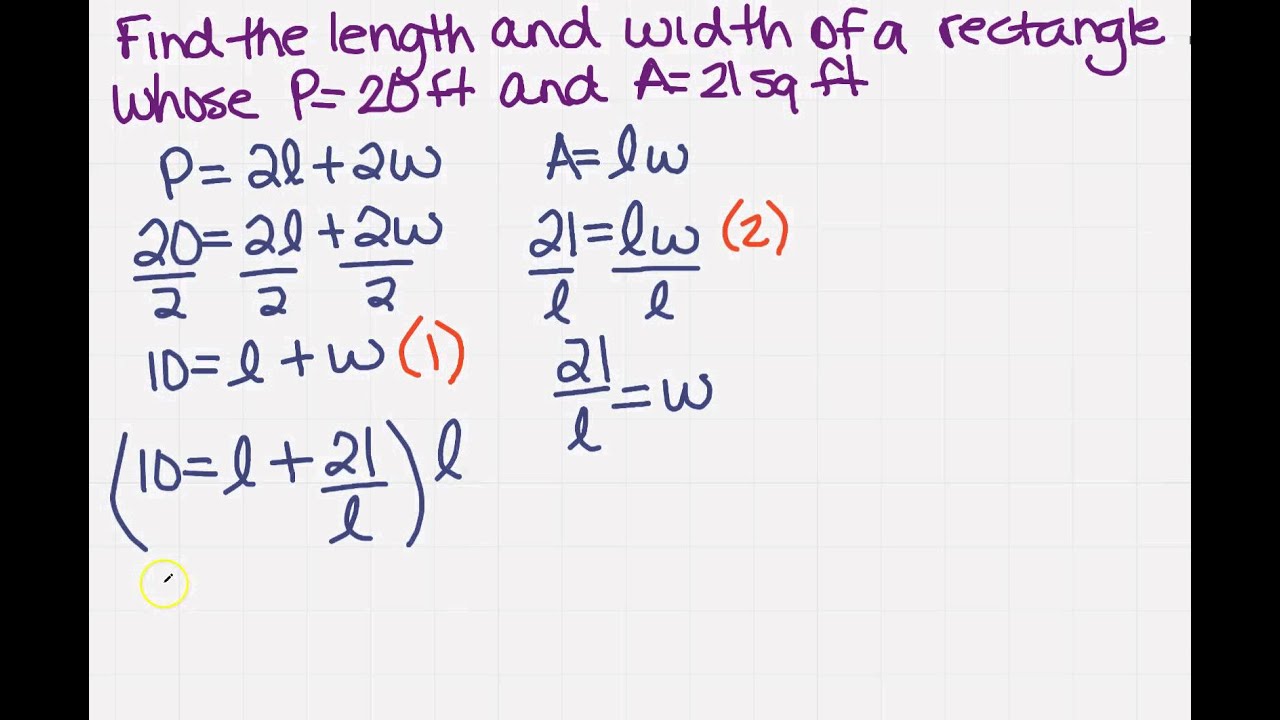 Find the length and width of a rectangle
whose P=20ft and A=21sq ft
P=2l+2w
20/2=2l/2+2w/2
10=l+w (1)
(10=l+21/l)l
A=lw
21/l=lw/l (2)
21/l=w